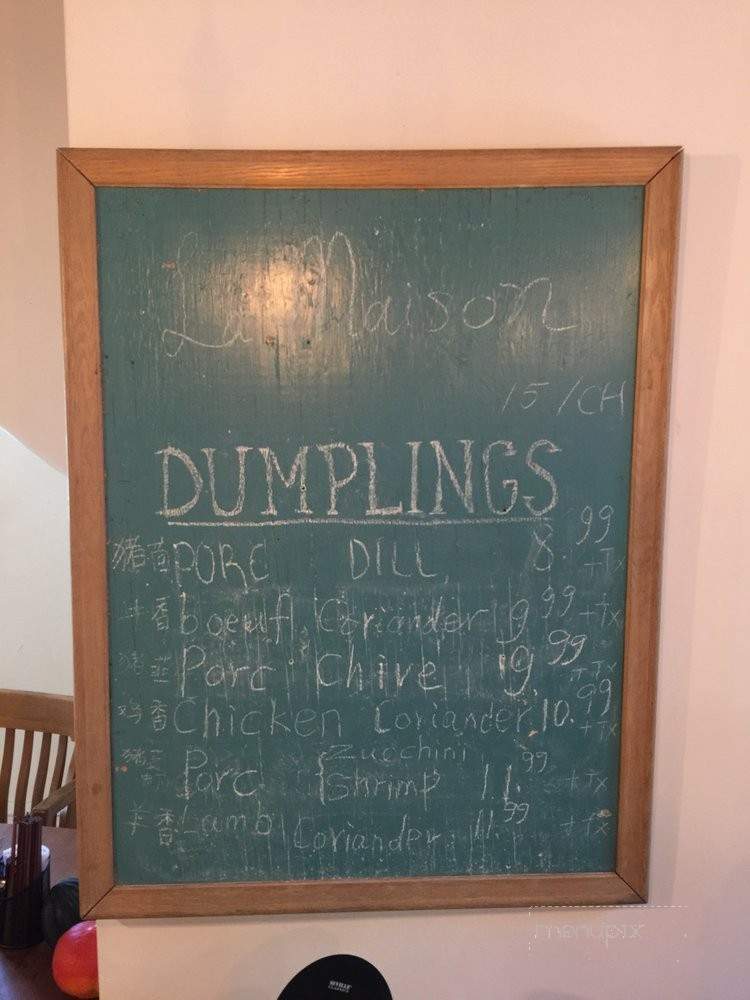 La Maison
15/CH
DUMPLINGS
猪茴 PORC DILL 8.99 +Tx
牛香 boeuf Coriander 9.99 +Tx
猪韭 Porc Chive 9.99 +Tx
鸡香 Chicken Coriander 10.99 +Tx
猪 虾 Porc { Zucchini
Shrimp 11.99 +Tx
羊香 Lamb Coriander 11.99 +Tx
menupix